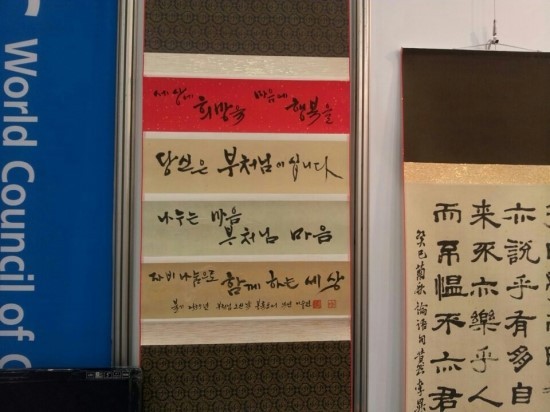 World Council of
세상에 희망을 마음에 행복을
당신은 부처님이십니다
나누는 마음
부처님 마음
자비 나눔으로 함께 하는 세상
亦說乎有多自
來不亦樂乎人
而不慍不亦君
癸巳蘭秋 論語句